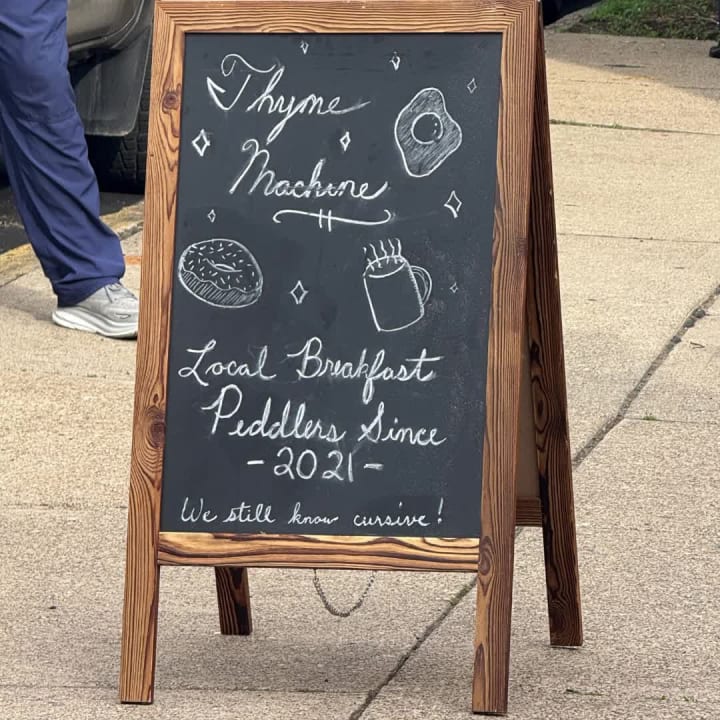 Thyme
Machine
Local Breakfast
Peddlers Since
-2021-
We still know cursive!